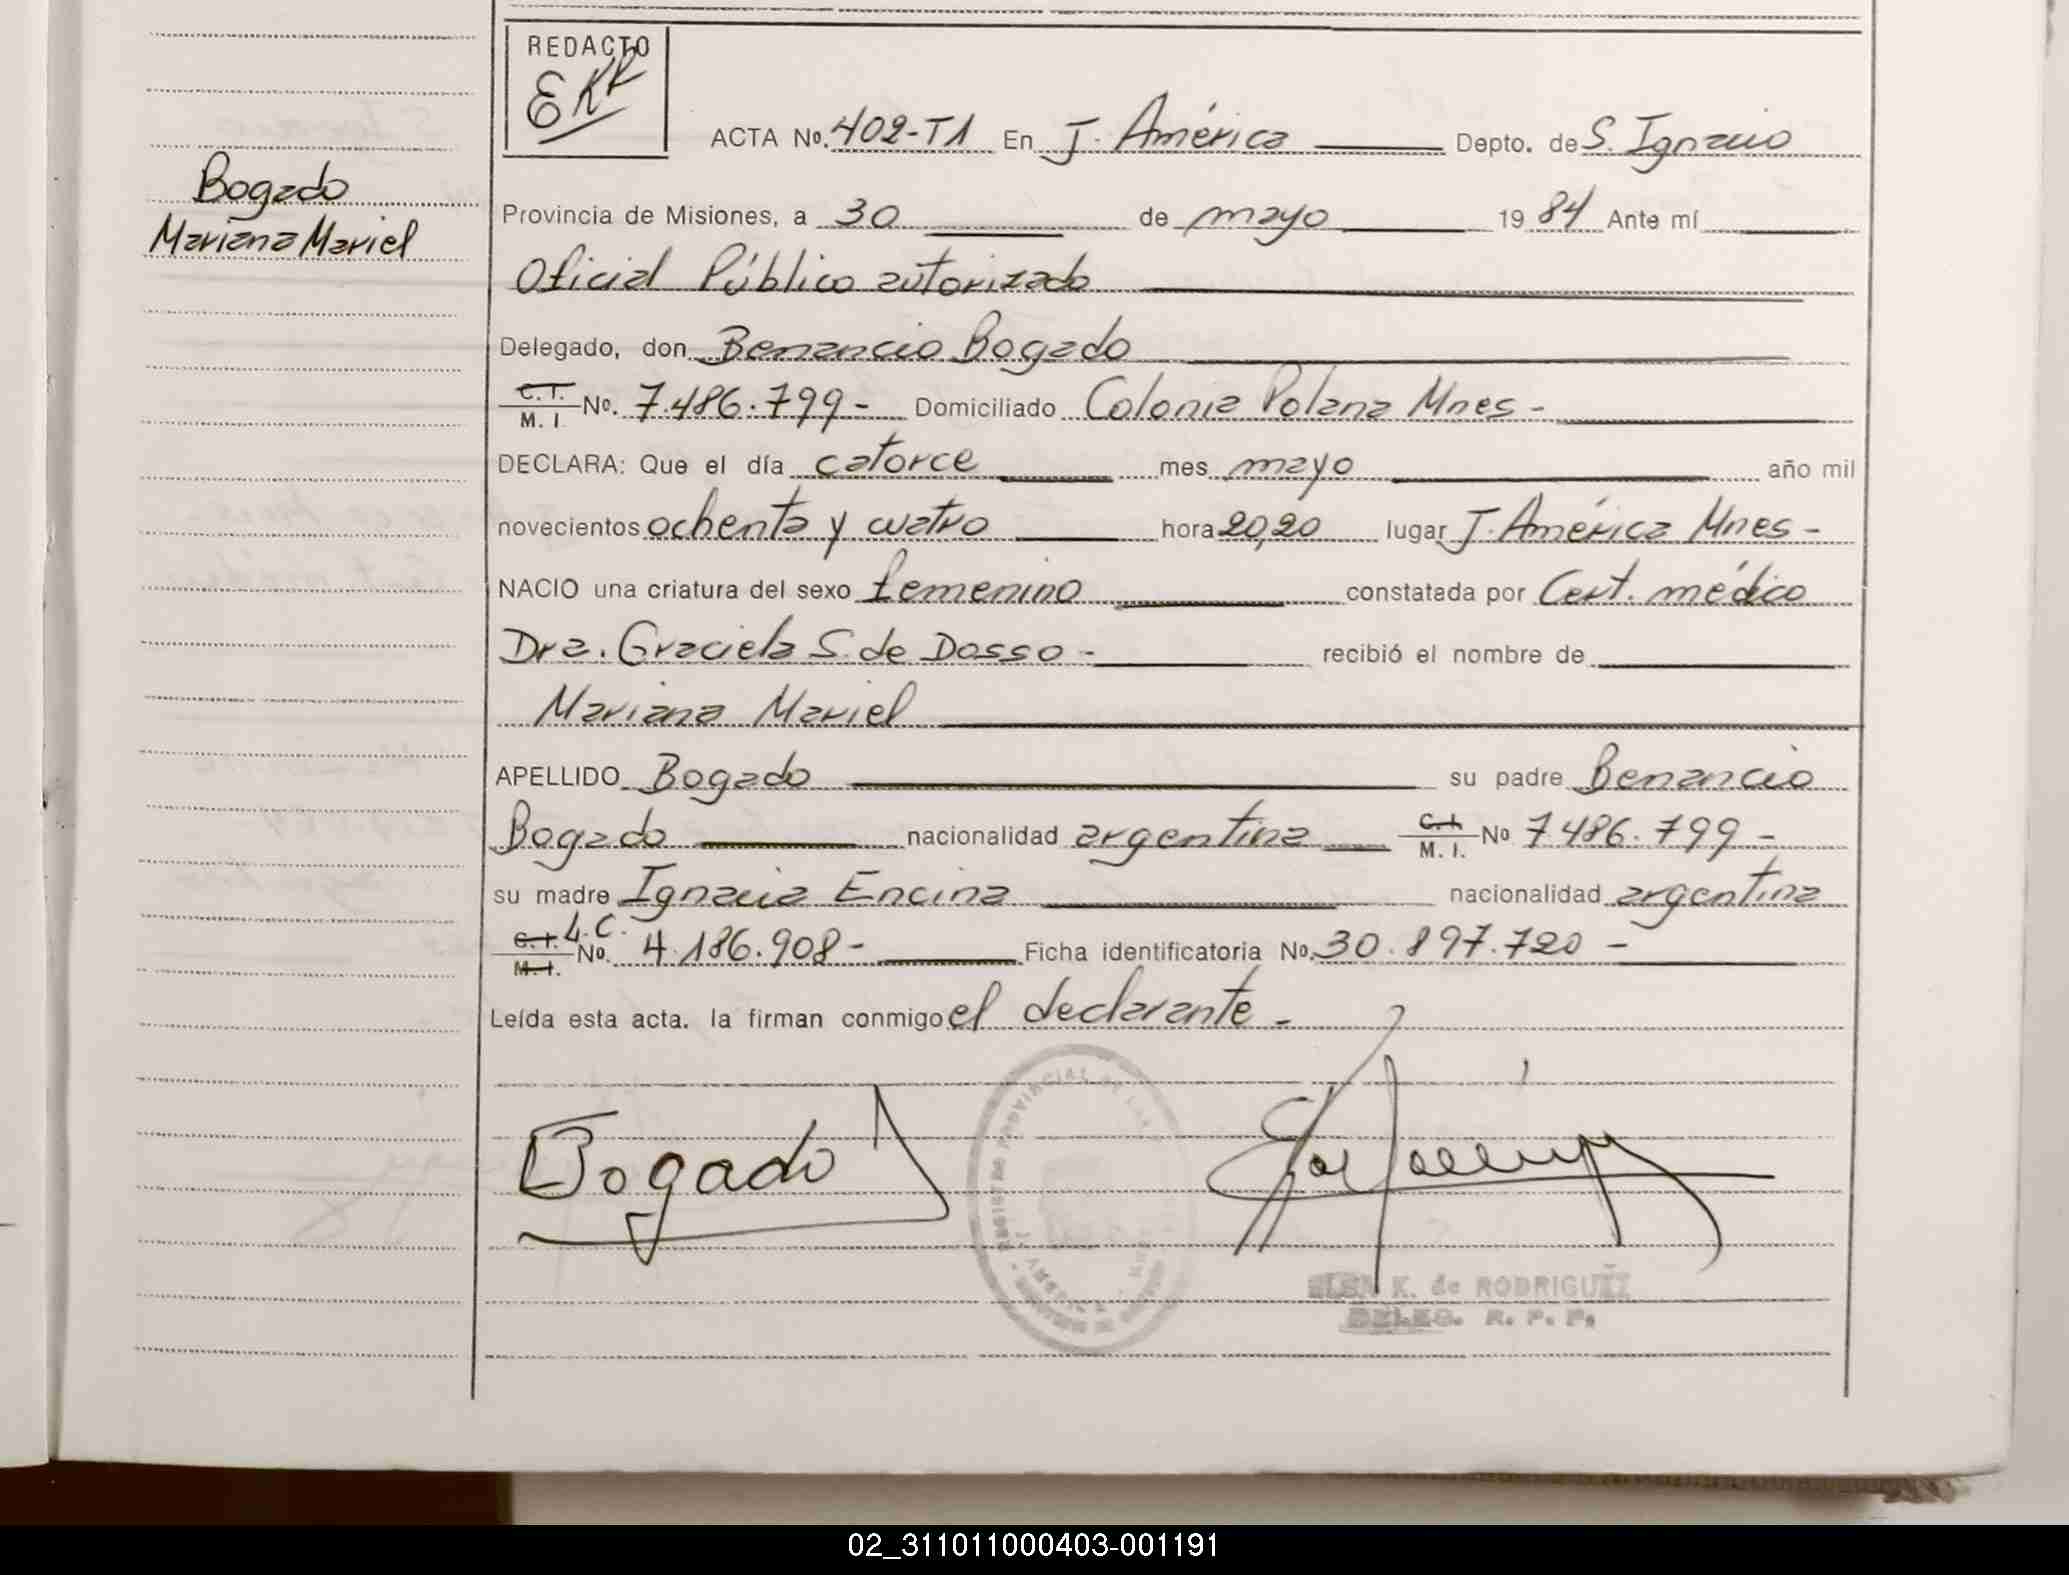 REDACTO
EKR
ACTA No. 402-T1 En J. América Depto. de S. Ignacio
Bogado
Mariana Mariel
Provincia de Misiones, a 30 de mayo 1984 Ante mí
Oficial Público autorizado
Delegado, don Benancio Bogado
C.I. M. I. No. 7.486.799- Domiciliado Colonia Polana Mnes-
DECLARA: Que el día catorce mes mayo año mil
novecientos ochenta y cuatro hora 20,20 lugar J. América Mnes-
NACIO una criatura del sexo femenino constatada por Cert. médico
Dra. Graciela S. de Dosso- recibió el nombre de
Mariana Mariel
APELLIDO Bogado su padre Benancio
Bogado nacionalidad argentina C.I. M. I. No 7.486.799-
su madre Ignacia Encina nacionalidad argentina
C.I. M.I. L.C. No. 4.186.908- Ficha identificatoria No. 30.897.720-
Leída esta acta. la firman conmigo el declarante-
Bogado
K. de RODRIGUEZ
DELEG. R. P. P.
02_311011000403-001191